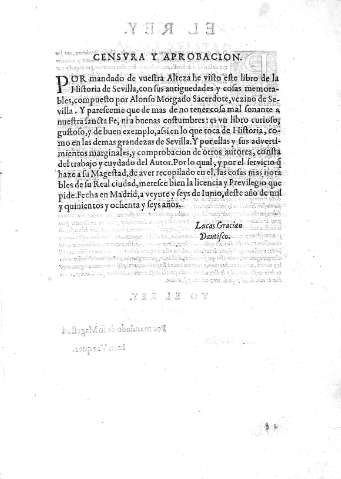 CENSVRA Y APROBACION.
POR mandado de vuestra Alteza he visto este libro de la
Historia de Sevilla, con sus antiguedades y cosas memora-
bles, compuesto por Alonso Morgado Sacerdote, vezino de Se-
villa. Y paresceme que de mas de no tener cosa mal sonante a
nuestra sancta Fe, ni a buenas costumbres: es vn libro curioso,
gustoso, y de buen exemplo, assi en lo que toca de Historia, co-
mo en las demas grandezas de Sevilla. Y por ellas y sus adverti-
mientos marginales, y comprobacion de otros autores, consta
del trabajo y cuydado del Autor. Por lo qual, y por el servicio q̃
haze a su Magestad, de aver recopilado en el, las cosas mas nota
bles de su Real ciudad, meresce bien la licencia y Previlegio que
pide. Fecha en Madrid, a veynte y seys de Iunio, deste año de mil
y quinientos y ochenta y seys años.
Lucas Gracian
Dantisco.